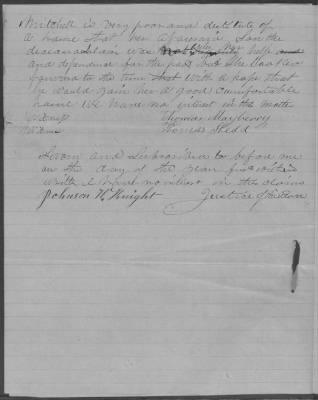 Mitchell is very poor and destitute of
a home that her
deceased son was help and
and dependence for the past but She looked
forward to the time that with a hope that
he would gain her a good comfortable
home We have no intrest in the matter
Witness Thomas Mayberry
Witness Thomas Stedd
Sworn and Subscribed to before me
on the day of the year first written
while I have no intrest in this claim
Johnson W. Knight Justice of